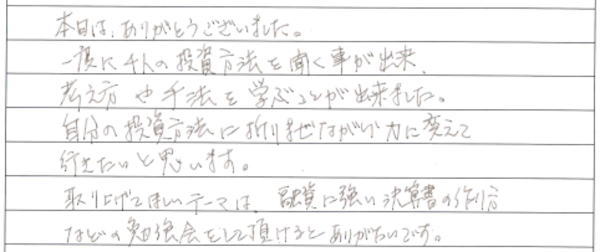 本日は、ありがとうございました。
一度に4人の投資方法を聞く事が出来、
考え方や手法を学ぶことが出来ました。
自分の投資方法に折りまぜながら力に変えて
行きたいと思います。
取り上げてほしいテーマは、融資に強い決算書の作り方
などの勉強会をして頂けるとありがたいです。